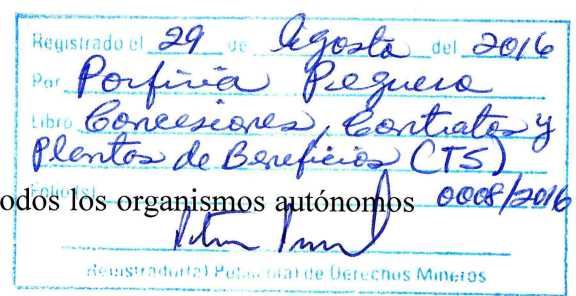 Registrado el 29 de Agosto del 2016
Por Porfiria Peguero
Libro Concesiones, Contratos y
Plantas de Beneficios (CTS)
Folio(s) 0008/2016
odos los organismos autónomos
Registrador(a) Público(a) de Derechos Mineros